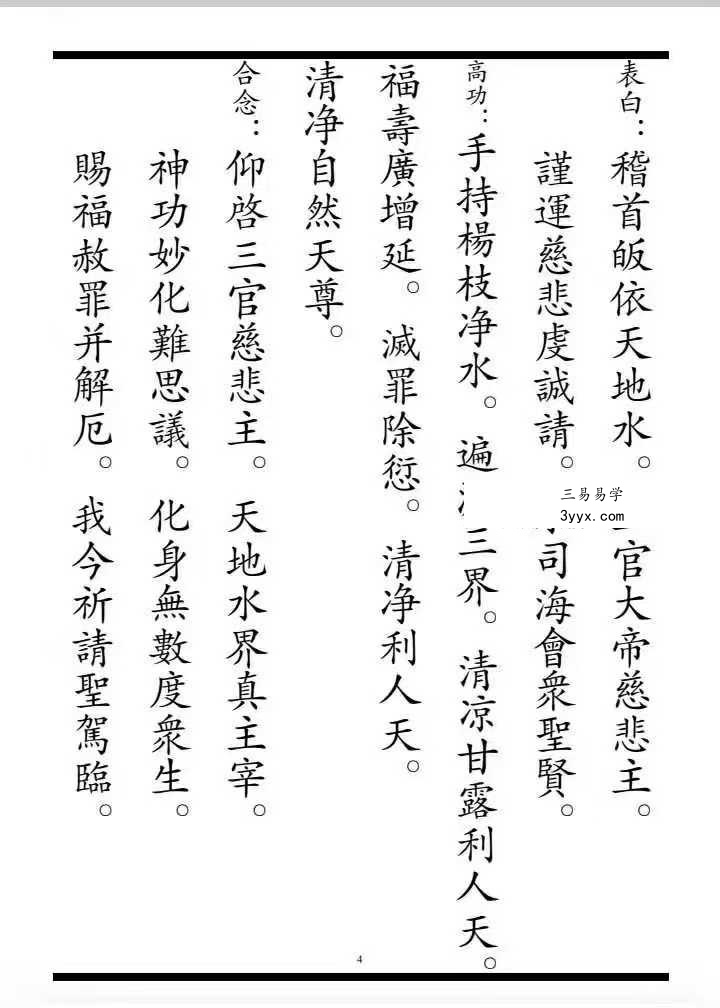 表白：稽首皈依天地水。官大帝慈悲主。
謹運慈悲虔誠請。司海會衆聖賢。
高功：手持楊枝净水。遍三界。清凉甘露利人天。
福壽廣增延。滅罪除愆。清净利人天。
清净自然天尊。
合念：仰啓三官慈悲主。天地水界真主宰。
神功妙化難思議。化身無數度衆生。
賜福赦罪并解厄。我今祈請聖駕臨。
三易易学
3yyx.com
4